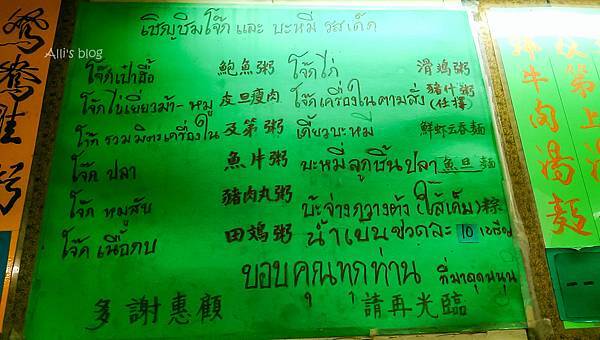 Alli's blog
เชิญชิมโจ๊ก และ บะหมี่ รสเด็ด
โจ๊กเป๋าฮื้อ 鮑魚粥
โจ๊กไข่เยี่ยวม้า-หมู 皮旦瘦肉
โจ๊ก รวมมิตรเครื่องใน 及第粥
โจ๊ก ปลา 魚片粥
โจ๊ก หมูสับ 豬肉丸粥
โจ๊ก เนื้อกบ 田鷄粥
โจ๊กไก่ 滑鷄粥
โจ๊กเครื่องในตามสั่ง 豬什粥(任擇)
เกี๊ยวบะหมี่ 鮮虾云吞麵
บะหมี่ลูกชิ้นปลา 魚旦麵
บ๊ะจ่างกวางตุ้ง (ไส้เค็ม) 粽
น้ำเย็นขวดละ 10
ขอบคุณทุกท่าน ที่มาอุดหนุน
多謝惠顧 請再光臨
鴛鴦
粥
牛肉湯麵
第上湯